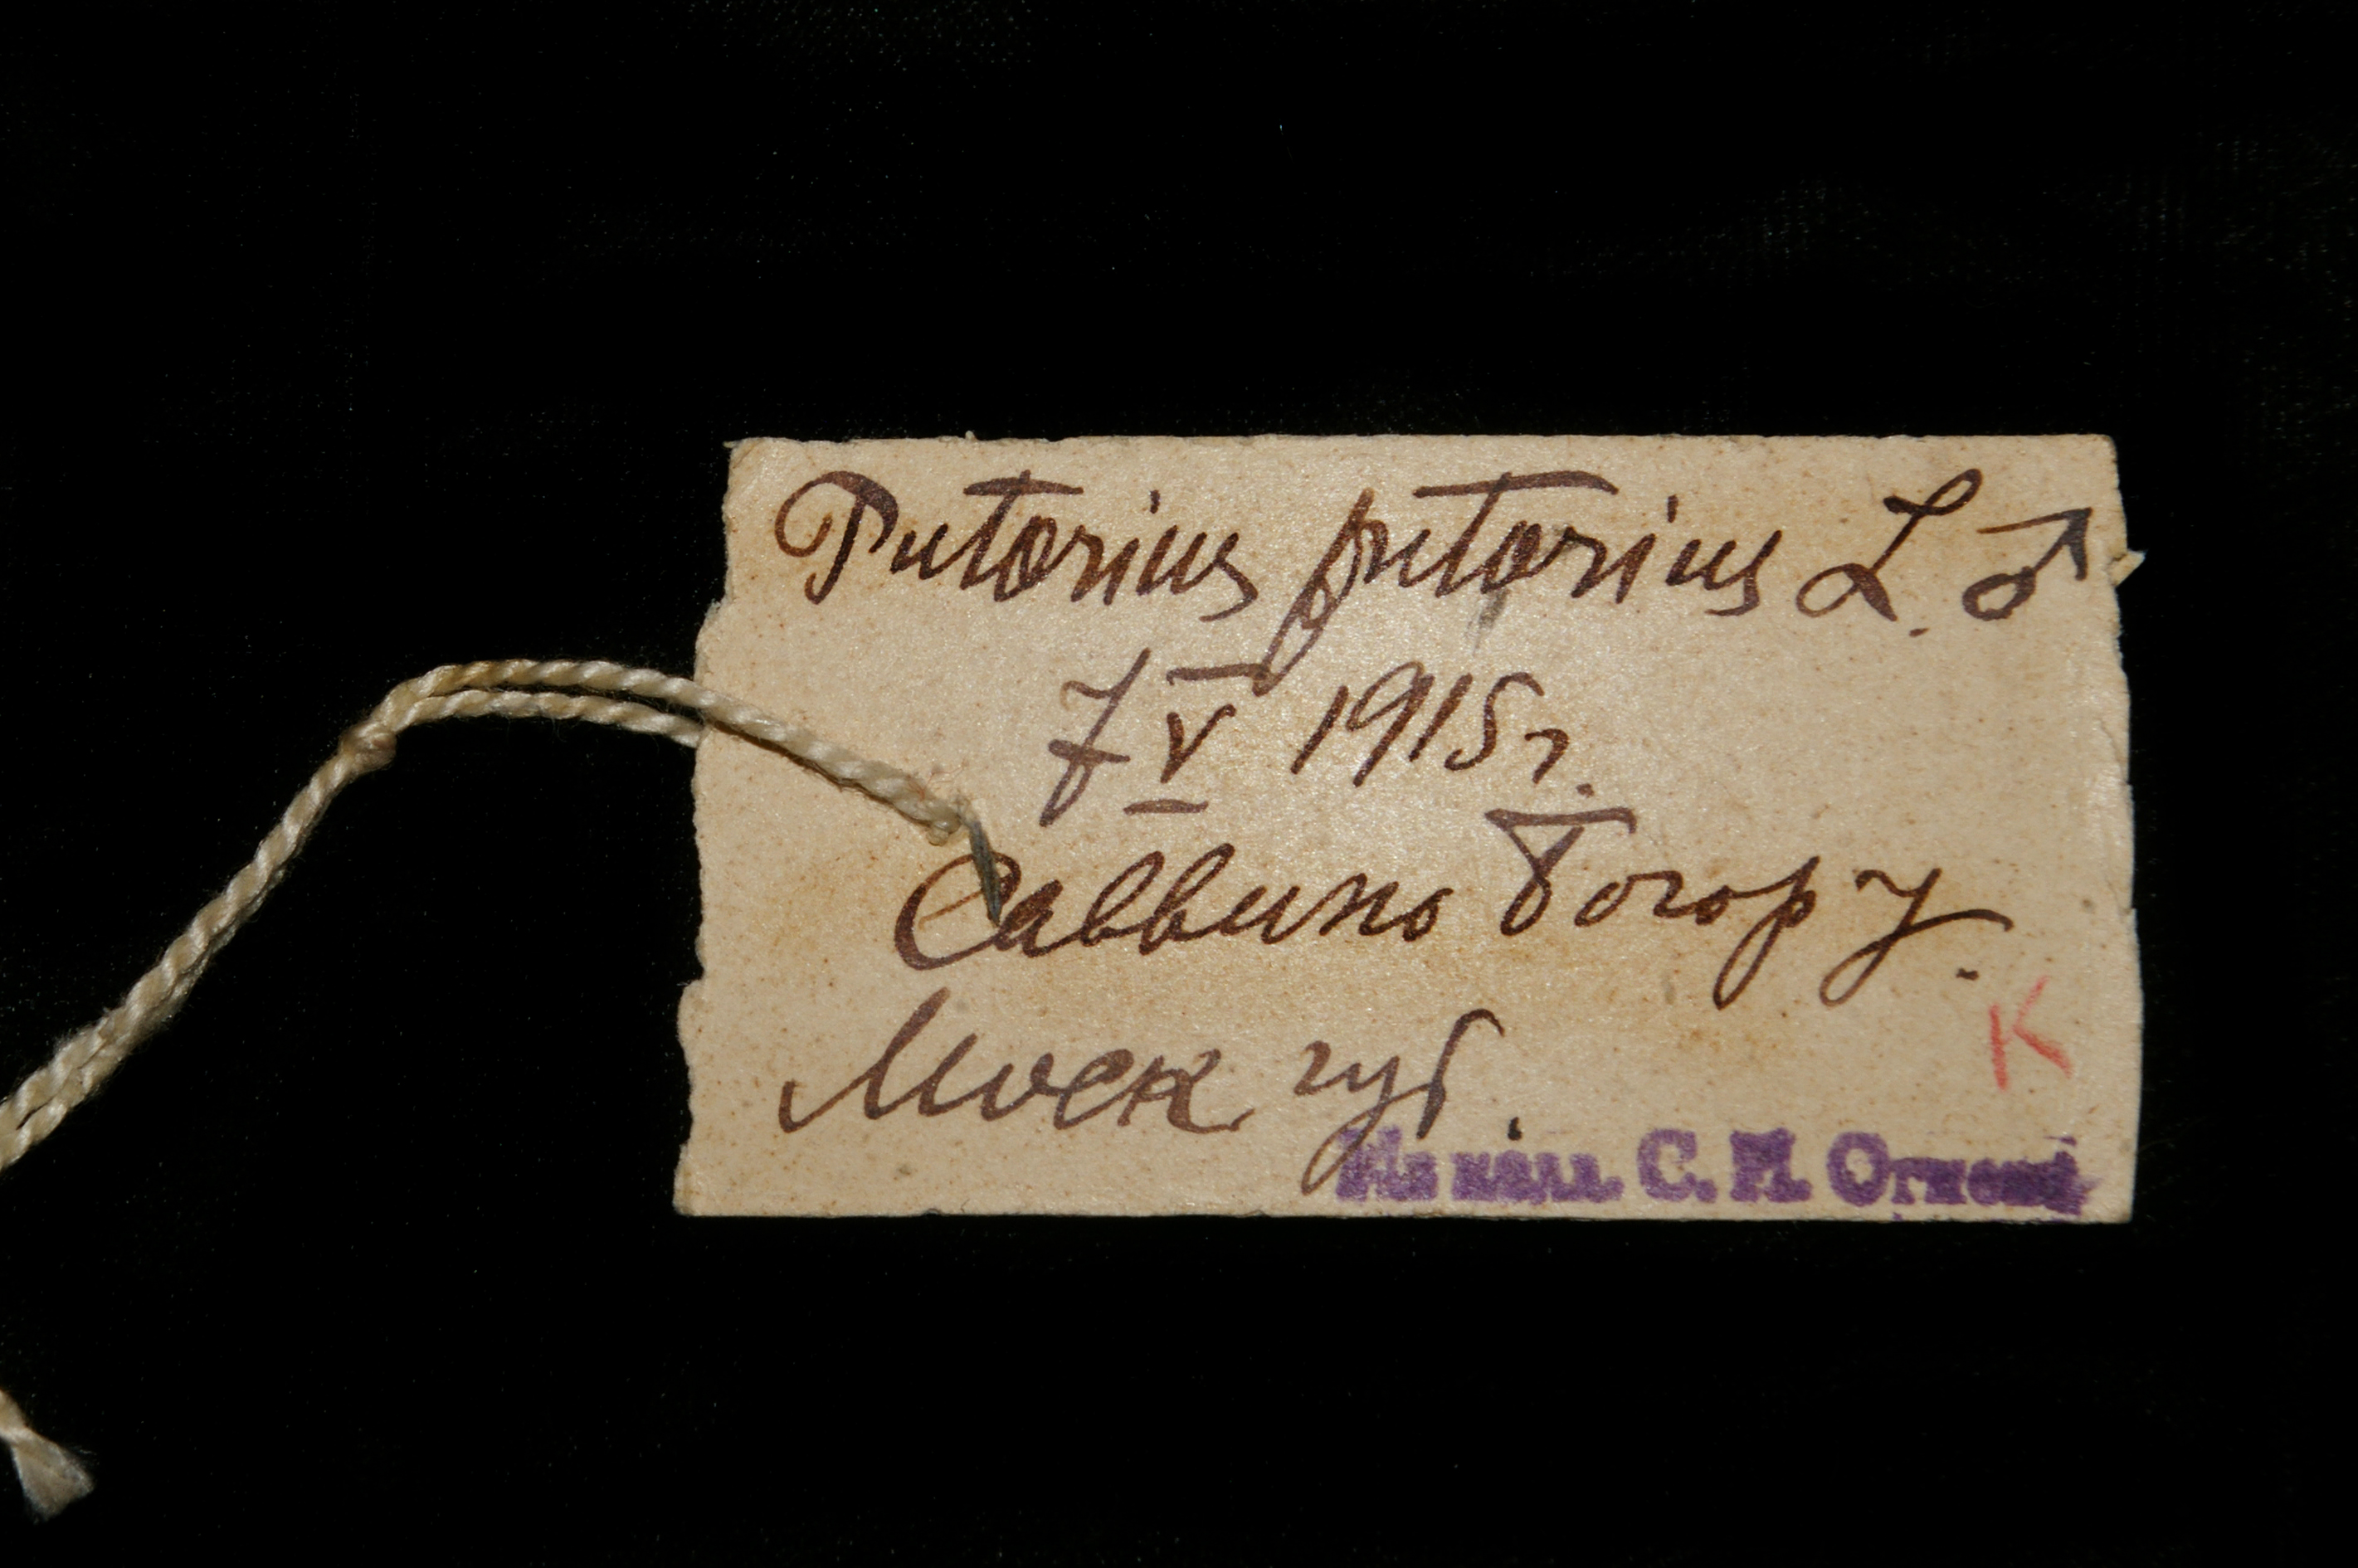 Putorius putorius L. ♂
7 V 1915 г.
Саввино Богор у.
Моск губ.
К
Из колл. С. И. Огнева